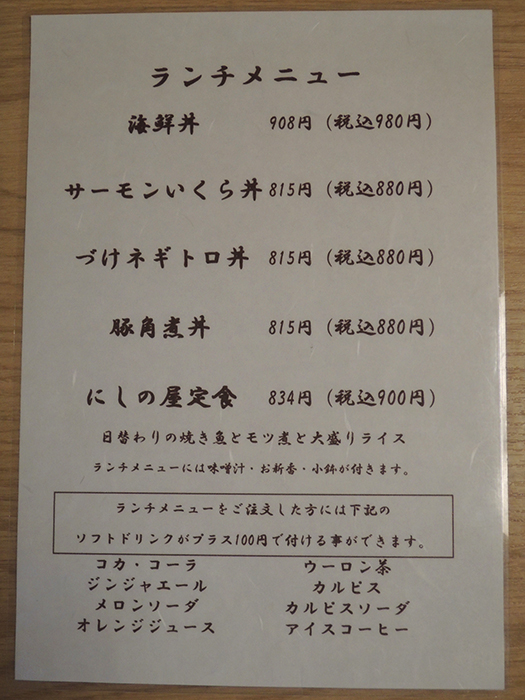 ランチメニュー
海鮮丼 908円（税込980円）
サーモンいくら丼 815円（税込880円）
づけネギトロ丼 815円（税込880円）
豚角煮丼 815円（税込880円）
にしの屋定食 834円（税込900円）
日替わりの焼き魚とモツ煮と大盛りライス
ランチメニューには味噌汁・お新香・小鉢が付きます。
ランチメニューをご注文した方には下記の
ソフトドリンクがプラス100円で付ける事ができます。
コカ・コーラ ウーロン茶
ジンジャエール カルピス
メロンソーダ カルピスソーダ
オレンジジュース アイスコーヒー